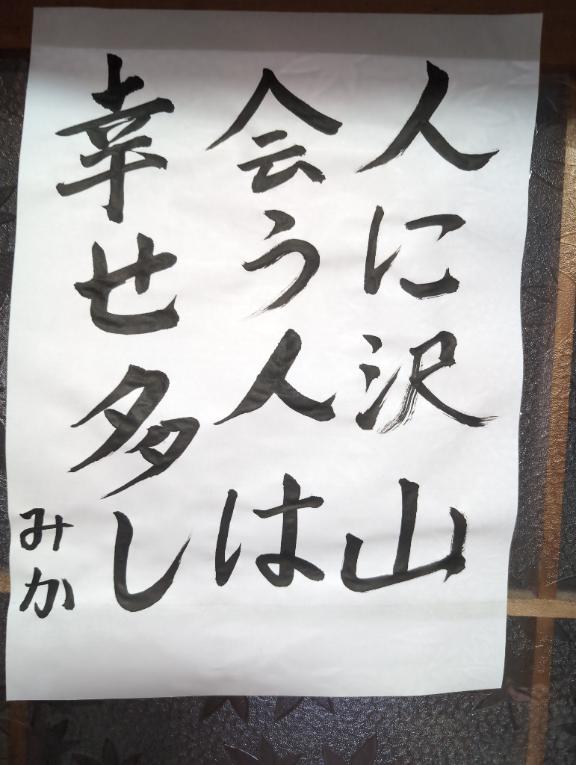 人に沢山
会う人は
幸せ多し
みか